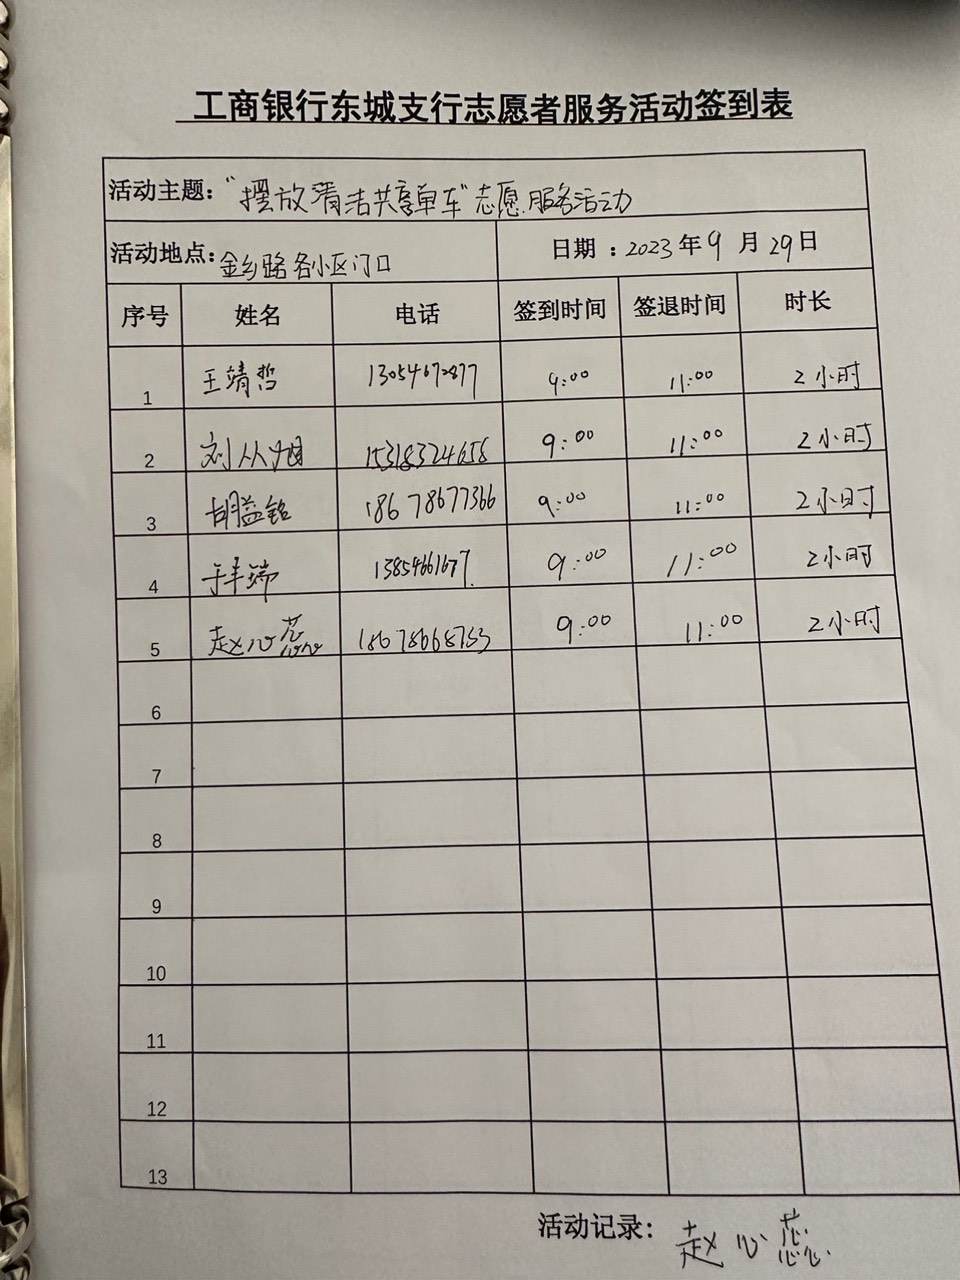 工商银行东城支行志愿者服务活动签到表
活动主题：“摆放清洁共享单车”志愿服务活动
活动地点：金乡路各小区门口 日期：2023年9月29日
序号 姓名 电话 签到时间 签退时间 时长
1 王靖哲 13054672877 9:00 11:00 2小时
2 刘从旭 15318324658 9:00 11:00 2小时
3 胡益铭 18678677366 9:00 11:00 2小时
4 于丰瑞 9:00 11:00 2小时
5 赵心蕊 18678668753 9:00 11:00 2小时
6
7
8
9
10
11
12
13
活动记录：赵心蕊